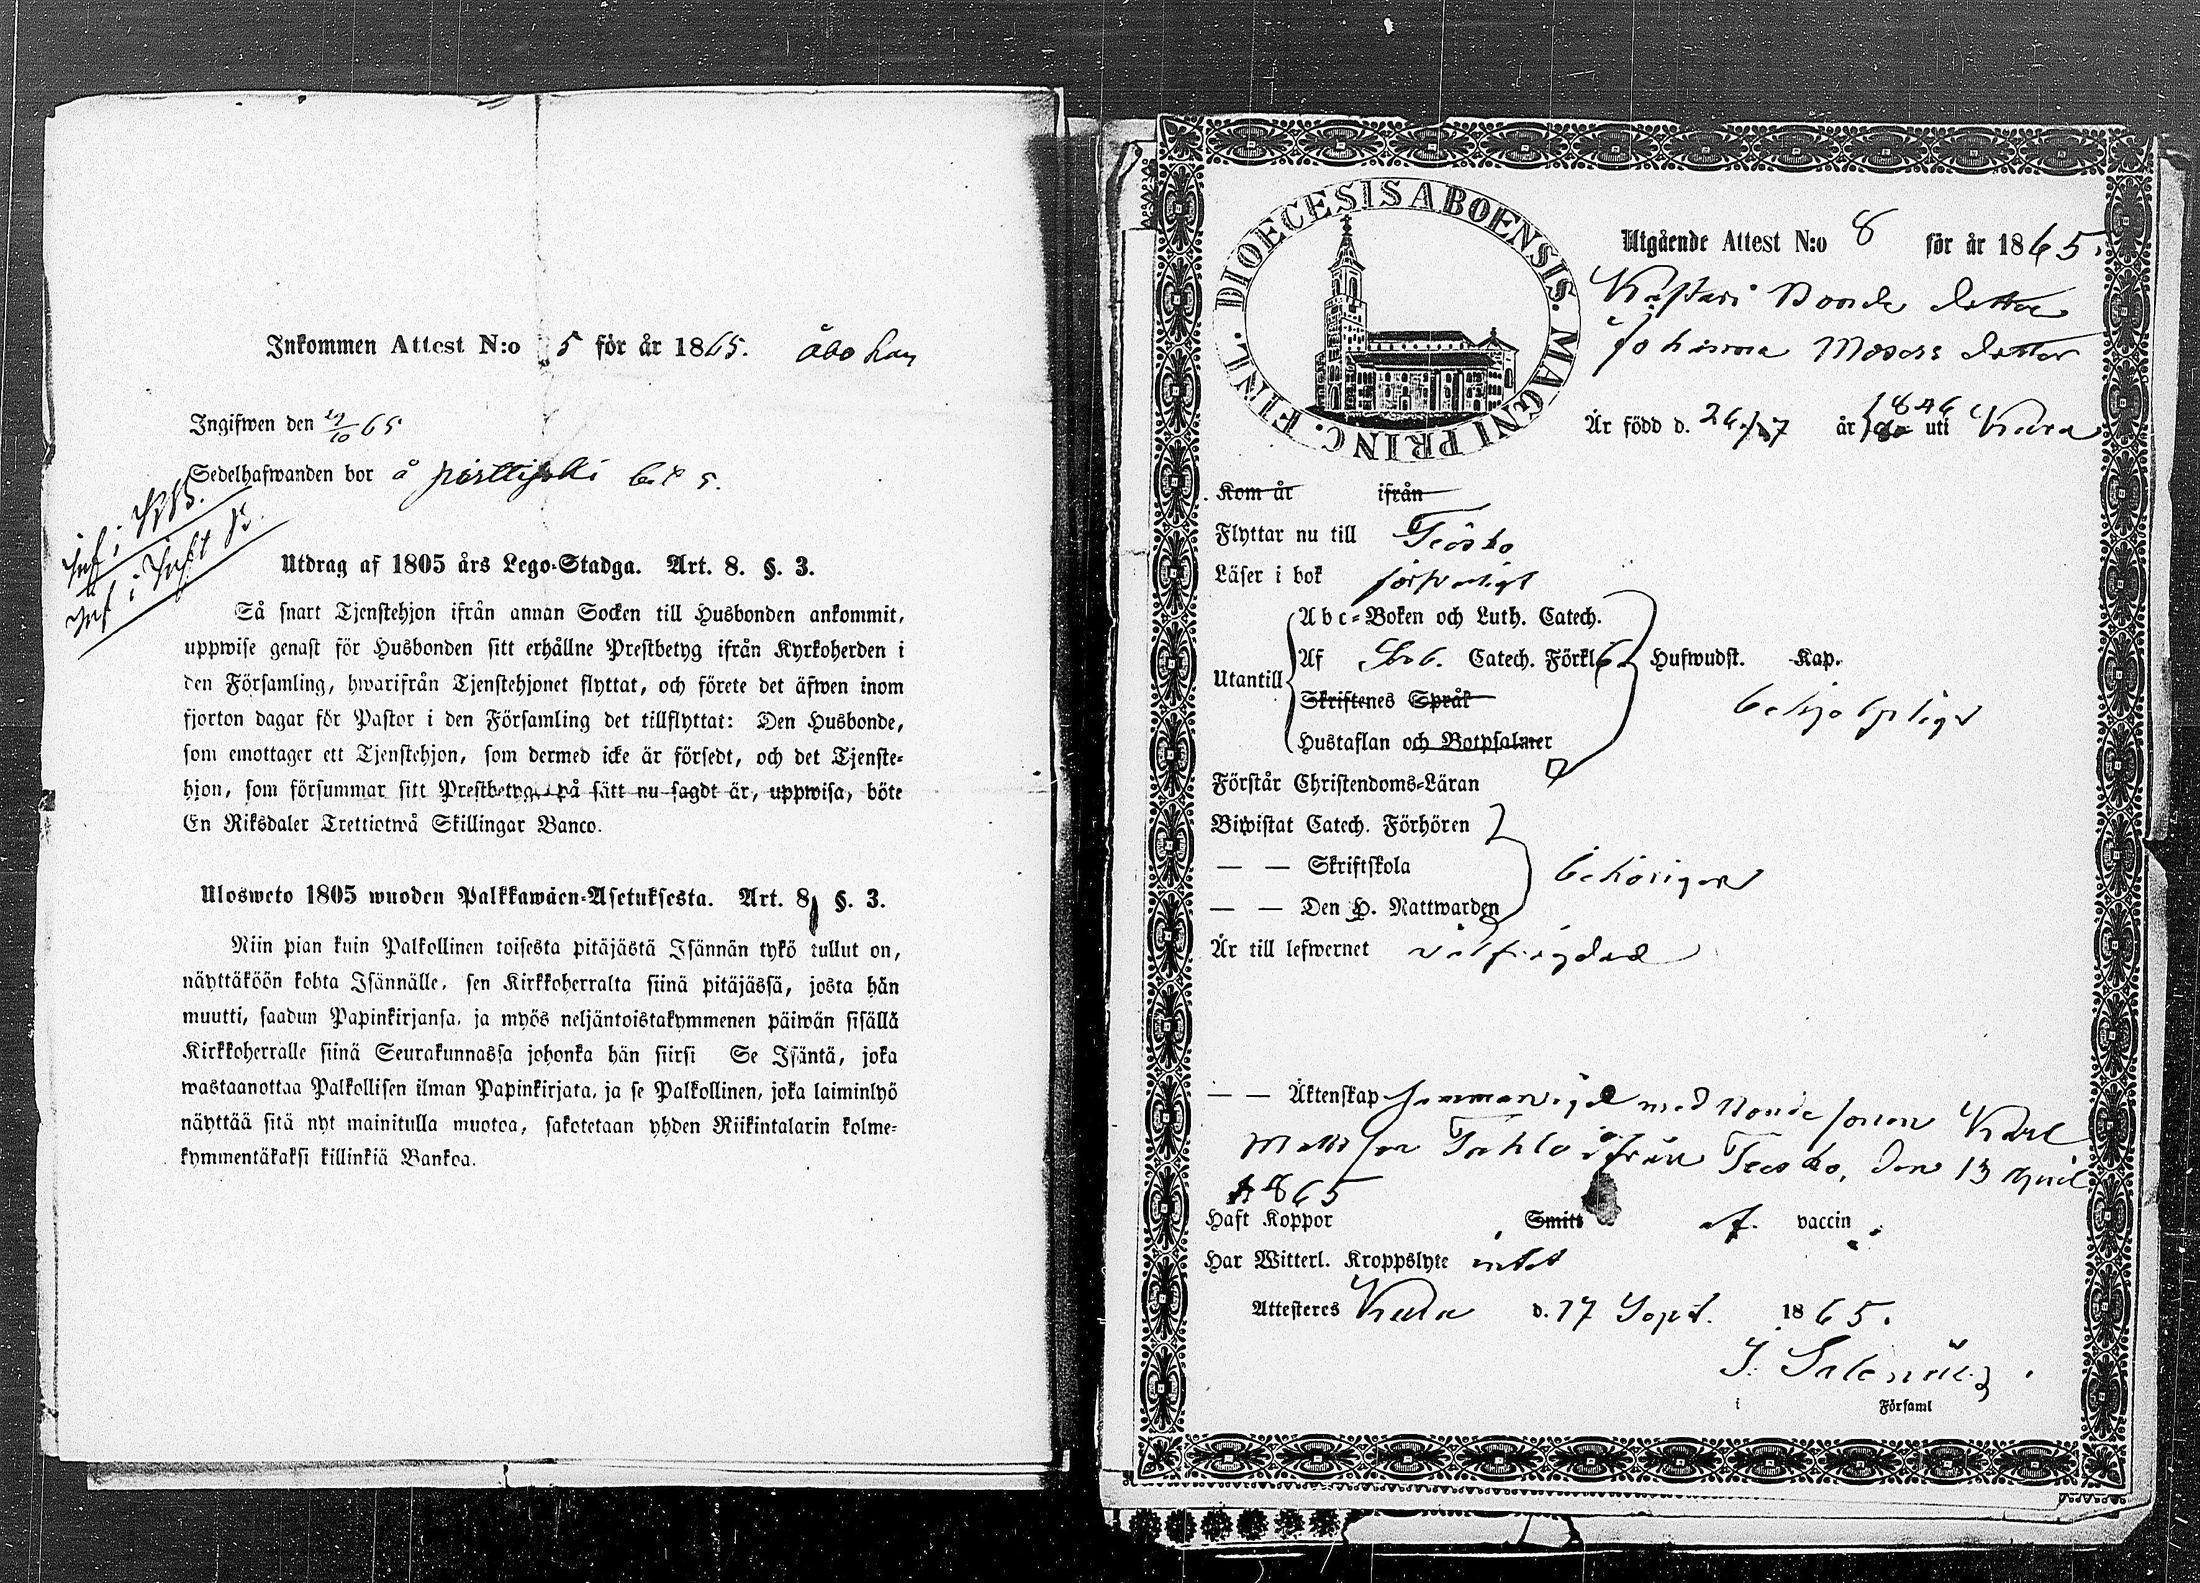 Inkommen Attest N:o 5 för år 1865. Åbo
Ingifwen den 29/10 65
Sedelhafwanden bor å
Utdrag af 1805 års Lego-Stadga. Art. 8. §. 3.
Så snart Tjenstehjon ifrån annan Socken till Husbonden ankommit,
uppwise genast för Husbonden sitt erhållne Prestbetyg ifrån Kyrkoherden i
den Församling, hwarifrån Tjenstehjonet flyttat, och förete det äfwen inom
fjorton dagar för Pastor i den Församling det tillflyttat: Den Husbonde,
som emottager ett Tjenstehjon, som dermed icke är försedt, och det Tjenste-
hjon, som försummar sitt Prestbetyg, på sätt nu sagdt är, uppwisa, böte
En Riksdaler Trettiotwå Skillingar Banco.
Ulosweto 1805 wuoden Palkkawäen-Asetuksesta. Art. 8 §. 3.
Niin pian kuin Palkollinen toisesta pitäjästä Isännän tykö tullut on,
näyttäköön kohta Isännälle, sen Kirkkoherralta siinä pitäjässä, josta hän
muutti, saadun Papinkirjansa, ja myös neljäntoistakymmenen päiwän sisällä
Kirkkoherralle siinä Seurakunnassa johonka hän siirsi Se Isäntä, joka
wastaanottaa Palkollisen ilman Papinkirjata, ja se Palkollinen, joka laiminlyö
näyttää sitä nyt mainitulla muotoa, sakotetaan yhden Riikintalarin kolme-
kymmentäkaksi killinkiä Bankoa.
DIOECESIS ABOENSIS. MAGNI PRINC. FINL.
Utgående Attest N:o 8 för år 1865.
Bonde dotter
Johanna Mosers dotter
Är född d. 26 år 1846 uti
Kom år ifrån
Flyttar nu till
Läser i bok försvarligt
Abc-Boken och Luth. Catech.
Utantill
Af Catech. Förkl Hufwudst. Kap.
Skriftenes Språk
behjelpligt
Hustaflan och Botpsalmer
Förstår Christendoms-Läran
Biwistat Catech. Förhören
— — Skriftskola behörigen
— — Den H. Nattwarden
Är till lefwernet välfrägdad
— — Äktenskap sammanvigd med Bonde sonen Karl
Matts son ifrån, den 13 April
1865
Haft Koppor Smitt af. vaccin
Har Witterl. Kroppslyte intet
Attesteres d. 17 Sept. 1865.
i Församl